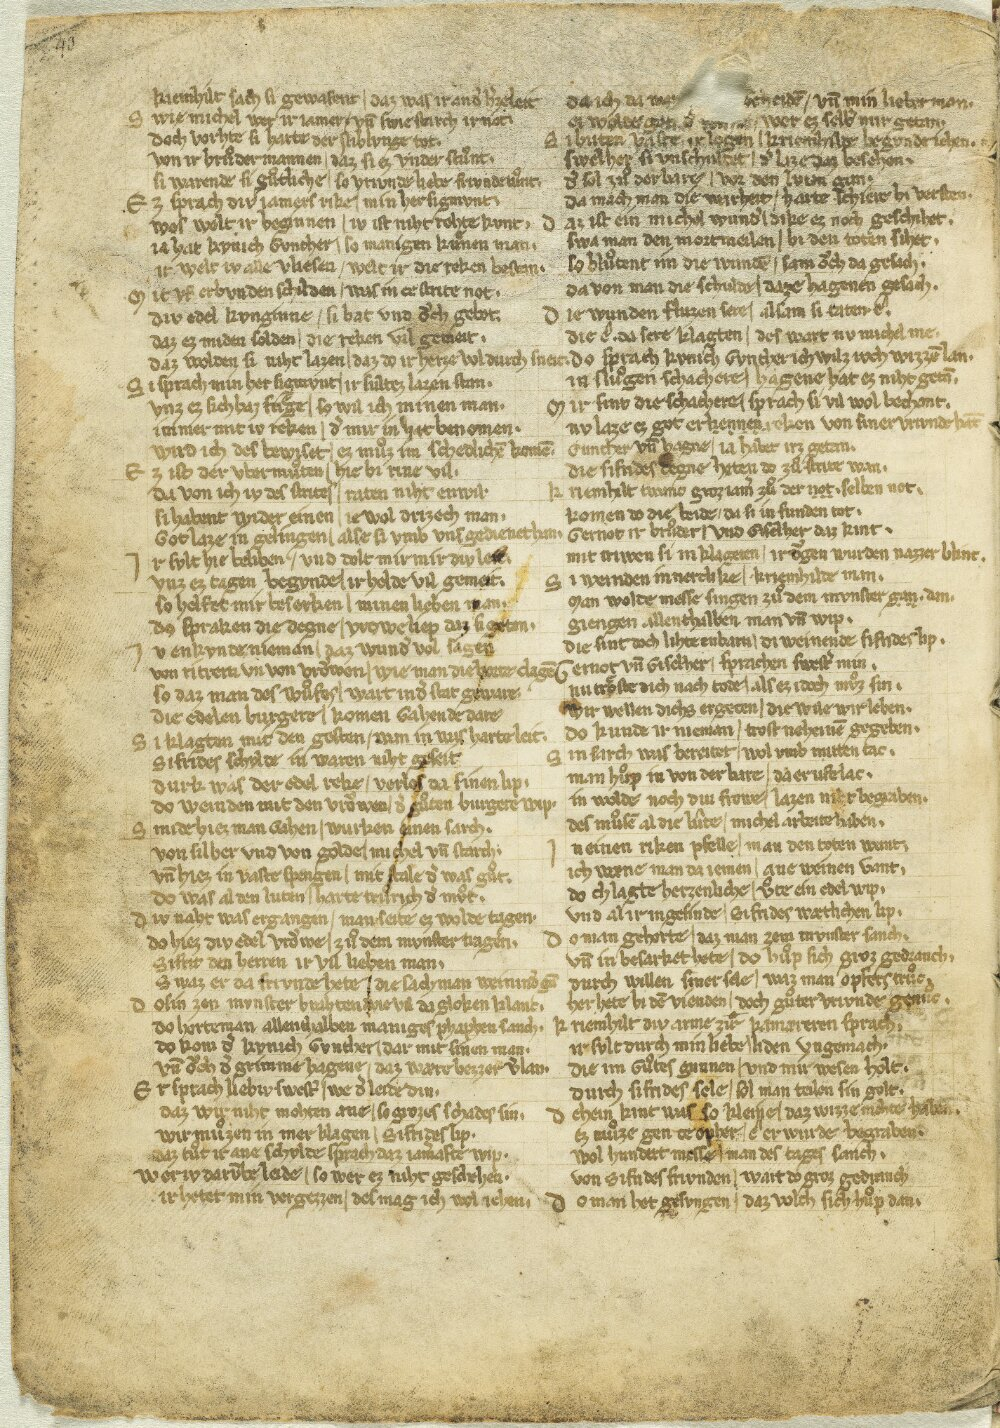 43
kriemhilt sach si gewafent / daz was ir and h̓zeleit
S wie michel wer ir iamer / vn̄ swie starch ir not
doch vorhte si harte / der niblunge tot.
von ir brůder mannen / daz si ez vnder stůnt.
si warende si gůtliche / so vriunde liebe friunde tůnt.
E z sprach div iamers rike / min her sigmunt
wes welt ir beginnen / iv ist niht rehte kunt.
ia hat kunich Gunther / so manigen kůnen man.
ir welt iv alle vliesen / welt ir die reken bestan.
M it vf erbunden schilden / was in ce strite not.
div edel kunginne / si bat und ŏch gebot.
daz ez miden solden / die reken vil gemeit.
daz wolden si niht lazen / daz do ir herze wol durch sneit.
S i sprach min her sigmunt / ir sultez lazen stan.
vnz ez sich baz fůge / so wil ich minen man.
immer mit iv reken / d̓ mir in hat benomen.
wird ich des bewiset / ez můz im schedlichē komē.
E z ist der vbermůten / hie bi rine vil.
da von ich iv des strites / raten niht enwil.
si habent wider einen / ie wol drizech man.
Got laze in gelingen / alse si vmb uns gedienet han.
I r sult hie beliben / und dolt mit mir div leit.
vnz ez tagen begunde / ir helde vil gemeit.
so helfet mir besorken / minen lieben man.
do spraken die degne / vrowe liep daz si getan.
I v enkunde nieman / daz wunder vol sagen
von rittern vn von vrŏwen / wie man die horte clagē
so daz man des wůfes / wart in d̓ stat geware.
die edelen burgere / komen Gahende dare
S i klagten mit den gesten / wan in was harte leit.
Sifrides schulde in waren niht geseit
durh was der edel reke / verlos da sinen lip.
do weinden mit den vrŏwen / d̓ gůten burgere wip.
S mide hiez man Gahen / wurken einen sarch.
von silber vnd von golde / michel vn̄ starch.
vn̄ hiez in vaste spengen / mit stale d̓ was gůt.
do was al den luten / harte trurich d̓ můt.
D iv naht was ergangen / man seite ez wolde tagen.
do hiez div edel vrŏwe / zů dem munster tragen.
Sifrit den herren ir vil lieben man.
S waz er da friunde hete / die sach man weinnd̓ gā
D o si in zen munster brahten / wie vil da gloken klanc.
do horte man allenthalben maniges phaphen sanch.
do kom d̓ kunich Gunther / dar mit sinen man.
vn̄ ŏch d̓ grimme hagene / daz ware bezzer v̓lan.
E r sprach liebiv swest̓ / we d̓ leide din.
daz wir niht mohten ane / so grozes schades sin.
wir můzen in mer klagen / Sifrides lip.
daz tůt ir ane schulde sprach daz iamerhafte wip.
W er iv dar vmbe leide / so wer ez niht geschehen.
ir hetet min vergezzen / des mag ich wol iehen.
da ich da war scheiden / vn̄ min lieber man.
ez wolde got / wer ez selb mir getan.
S i buten vaste ir lŏgen / kriemhilt begunde iehen.
swelher si vnschuldec / d̓ laze daz besehen.
d̓ sol zů der bare / vor den luten gan.
da mach man die warheit / harte schiere bi versten.
D az ist ein michel wund̓ / dike ez noch geschihet.
swa man den mortmeilen / bi den toten sihet.
so blůtent im die wunde / sam ŏch da gesach.
da von man die schulde / daze hagenen gesach.
D ie wunden fluzen sere / alsam si taten e.
die e da sere klagten / des wart nv michel me.
do sprach kunich Gunther ich wilz ivch wizzē lan.
in slůgen schachere / hagene hat ez niht getā.
M ir sint die schachere / sprach si vil wol bechant.
nv laze ez got errechen reken von siner vriunde hāt
Gunther vn̄ hagne / ia habet irz getan.
die sifrides degne heten do zů strite wan.
K riemhilt twanc groz iam̓ zů der not. selben not.
komen do die beide / da si in funden tot.
Gernot ir brůder / vnd Giselher daz kint.
mit triwen si in klageten / ir ŏgen wurden nazzer blint.
S i weinden innerchlike / kriemhilde man.
Man wolde messe singen zů dem munster gan. dan.
giengen allenthalben man vn̄ wip.
die sint doch lihte enbarn / di weinende sifrides lip.
G ernot vn̄ Giselher / sprachen swest̓ min.
nu trŏste dich nach tode / als ez idoch můz sin.
wir wellen dichs ergeten / die wile wir leben.
do kunde ir nieman / trost neheinē gegeben.
S in sarch was bereitet / wol vmb mitten tac.
man hůp in von der bare / da er ufe lac.
in wolde noch div frowe / lazen niht begraben.
des můsē al die lůte / michel arbeite haben.
I n einen riken pfelle / man den toten want,
ich wene man da iemen / ane weinen vant.
do chlagte herzenliche / Vte ein edel wip.
vnd al ir ingesinde / Sifrides wætlichen lip.
D o man gehorte / daz man zem munster sanch.
vn̄ in besarket hete / do hůp sich groz gedranch.
durch willen siner sele / waz man opfers trůc.
her hete bi dē vienden / doch gůter vriunde genůc.
K riemhilt div arme zir kamareren sprach,
ir sult durch min liebe / liden vngemach.
die im Gůtes gunnen / vnd mir wesen holt.
durch sifrides sele / sol man teilen sin golt.
D ehein kint was so kleine / daz wizze mohte haben.
ez můze gen ce opher / e er wurde begraben.
wol hundert messe / man des tages sanch.
von Sifrides friunden / wart do groz gedranch
D o man het gesungen / daz volch sich hůp dan.